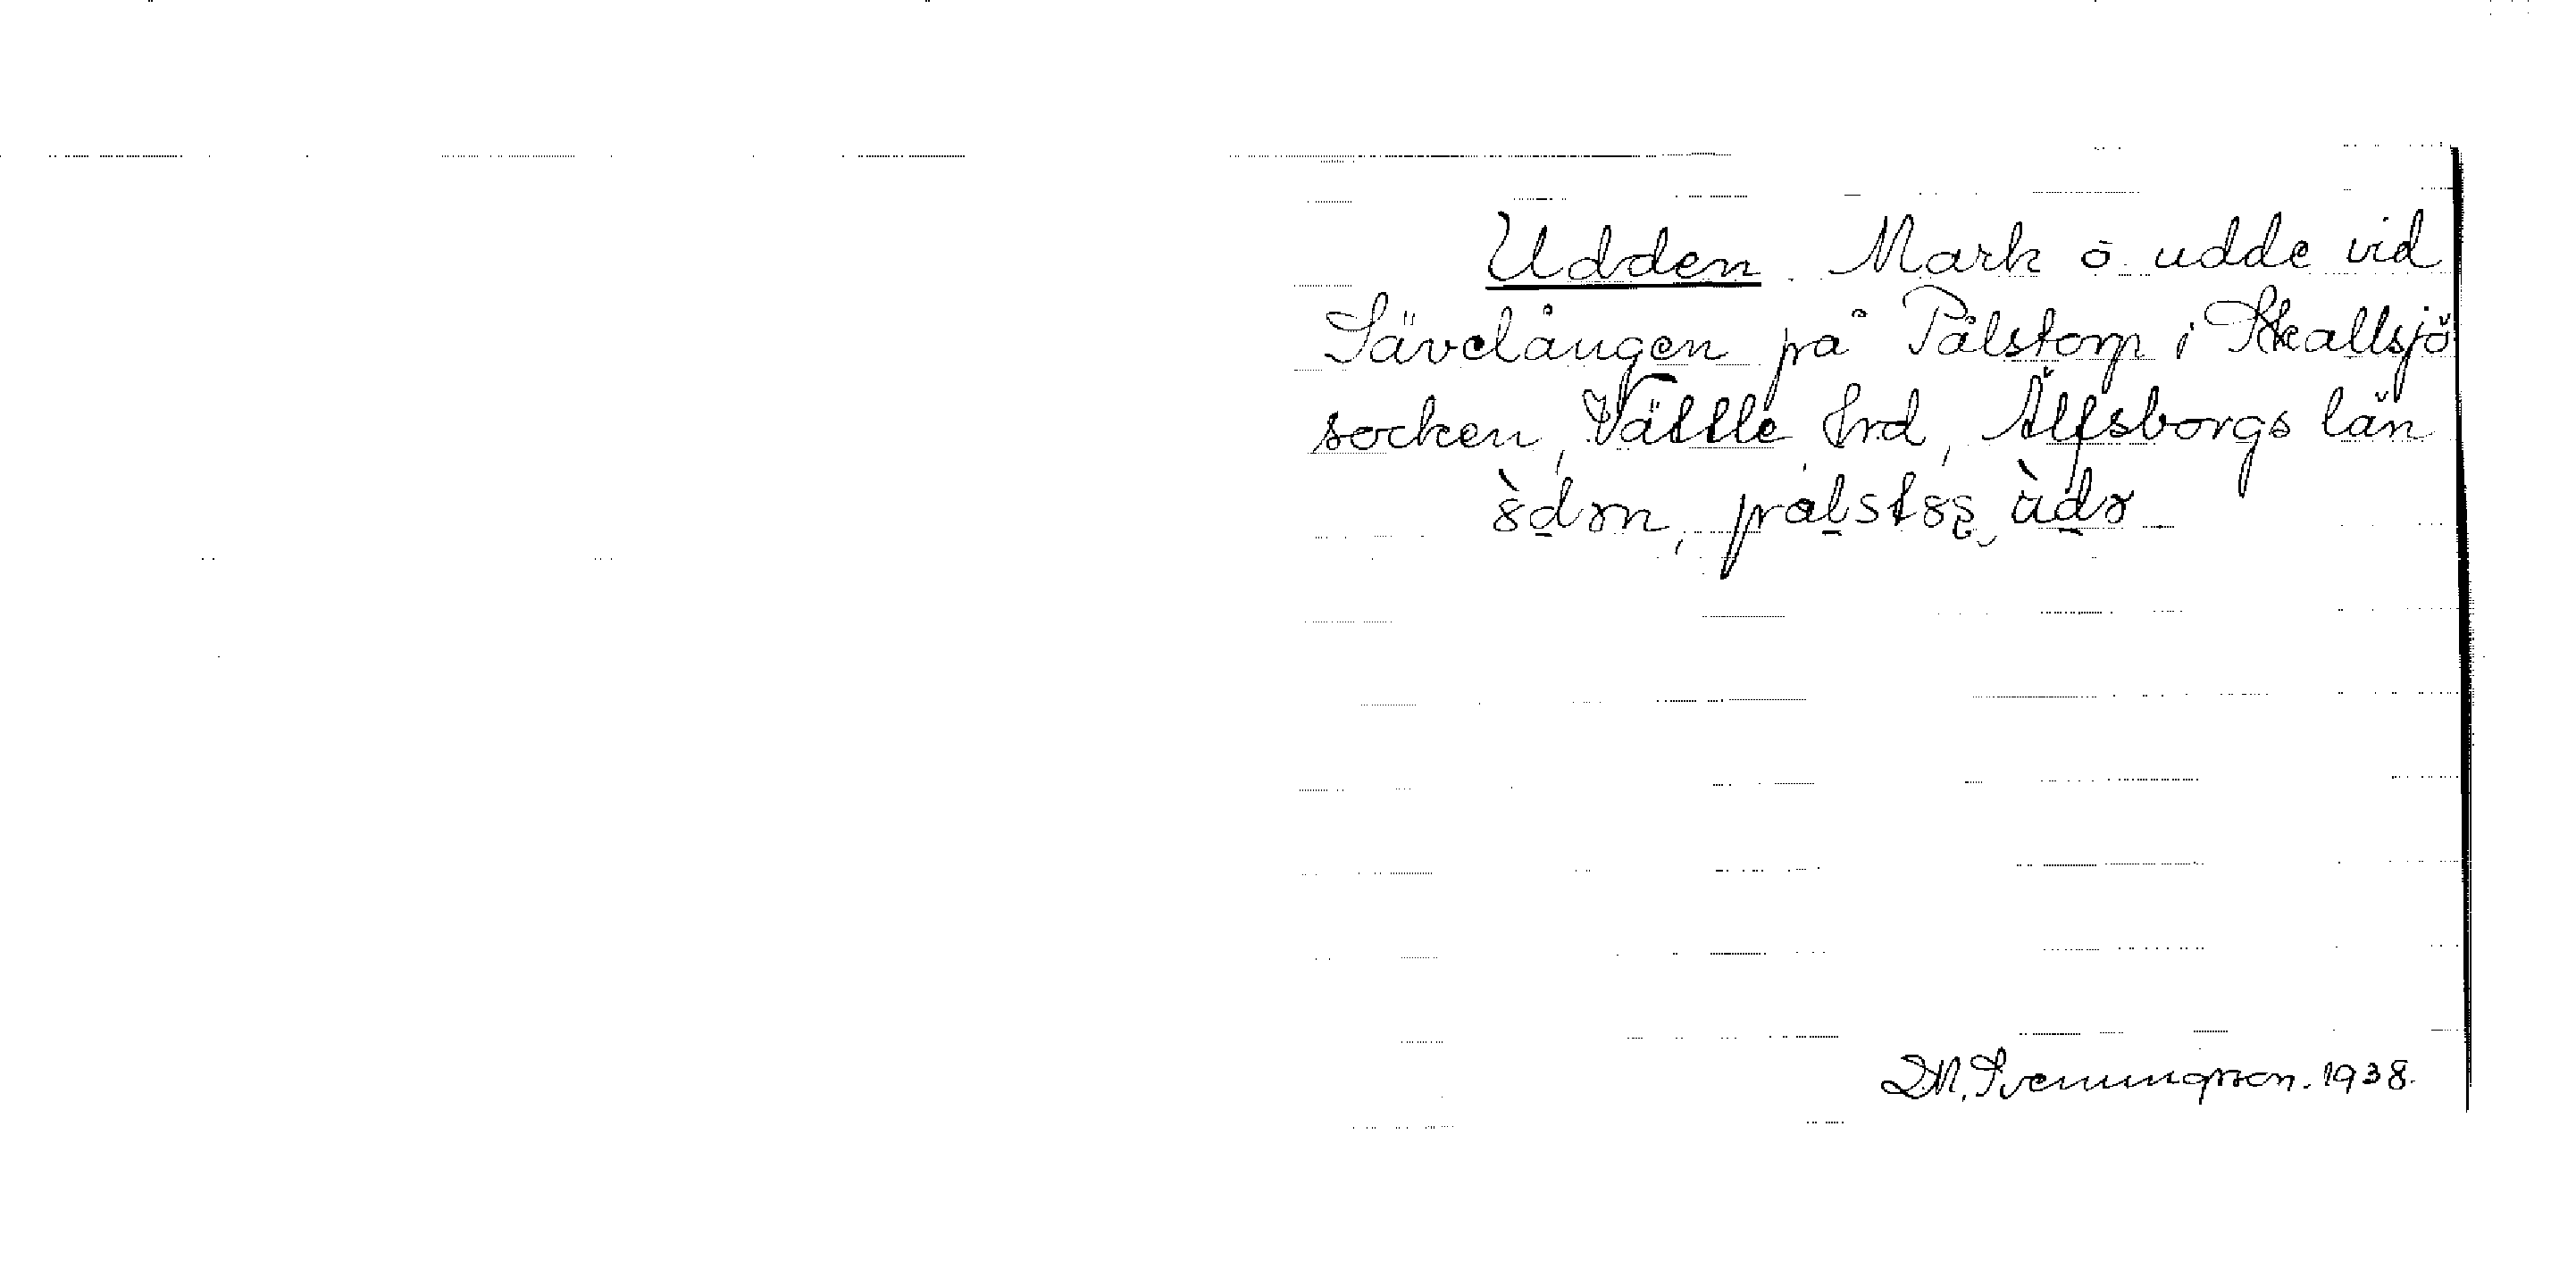 Udden. Mark o. udde vid
Sävelången på Pålstorp i Skallsjö
socken, Vättle hrd, Älfsborgs län
D.M. Svenningsson. 1938.